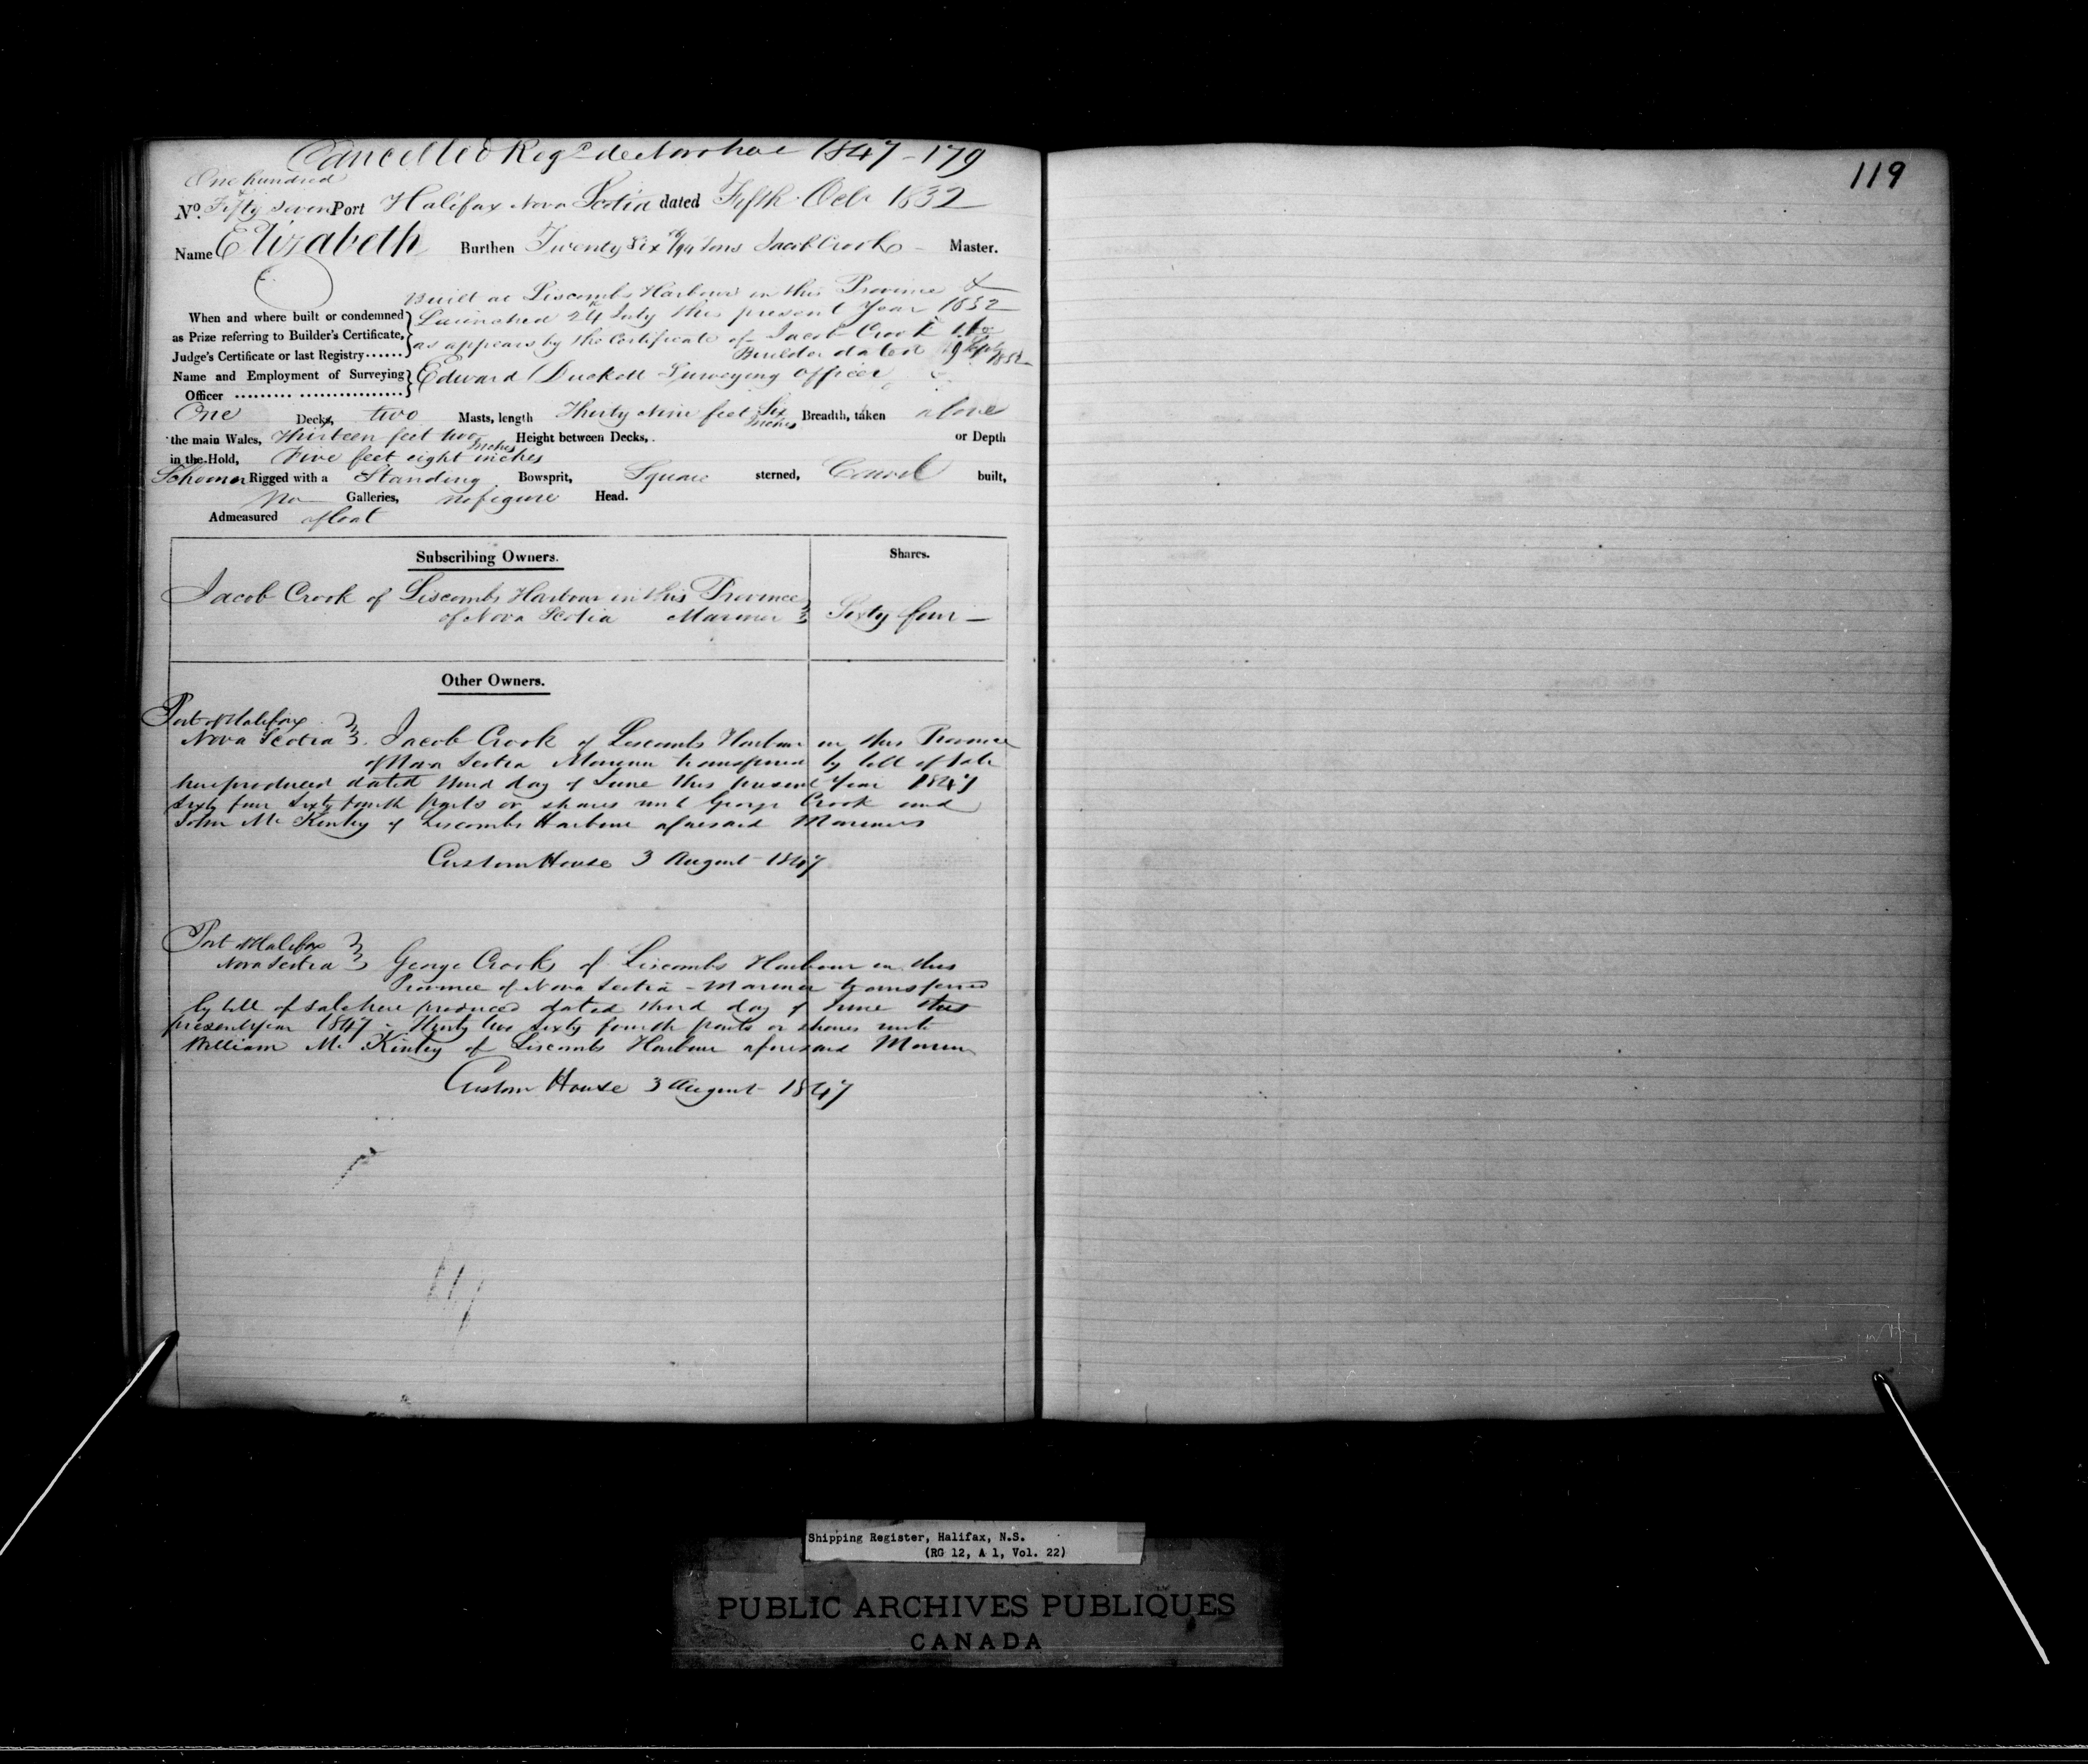 Cancelled Regd de Novo here 1847-179
119
One hundred
No. Fifty Seven Port Halifax Nova Scotia dated Fifth Octr 1832
Name Elizabeth Burthen Twenty Six /94 Tons Jacob Crook - Master.
Built at Liscombs Harbour in this Province &
When and where built or condemned Launched 24 July this present Year 1832
as Prize referring to Builder's Certificate, as appears by the Certificate of Jacob Crook the
Judge's Certificate or last Registry...... Builder dated 19 Septr 1832
Name and Employment of Surveying Edward Duckett Surveying Officer
Officer
One Decks, two Masts, length Thirty Nine feet Six Inches Breadth, taken above
the main Wales, Thirteen feet two Inches Height between Decks, or Depth
in the Hold, Five feet eight inches
Schooner Rigged with a Standing Bowsprit, Square sterned, Carvel built,
No Galleries, no figure Head.
Admeasured afloat
Subscribing Owners. Shares.
Jacob Crook of Liscombs Harbour in this Province
of Nova Scotia Mariner Sixty four -
Other Owners.
Port of Halifax
Nova Scotia Jacob Crook of Liscombs Harbour in this Province
of Nova Scotia Mariner transferred by bill of sale
here produced dated third day of June this present Year 1847
sixty four sixty fourth parts or shares unto George Crook and
John McKinley of Liscombs Harbour aforesaid Mariners
Custom House 3 August 1847
Port of Halifax
Nova Scotia George Crook of Liscombs Harbour in this
Province of Nova Scotia - Mariner transferred
by bill of sale here produced dated third day of June this
present year 1847 - Thirty two sixty fourth parts or shares unto
William McKinley of Liscombs Harbour aforesaid Mariner
Custom House 3 August 1847
Shipping Register, Halifax, N.S.
(RG 12, A 1, Vol. 22)
PUBLIC ARCHIVES PUBLIQUES
CANADA